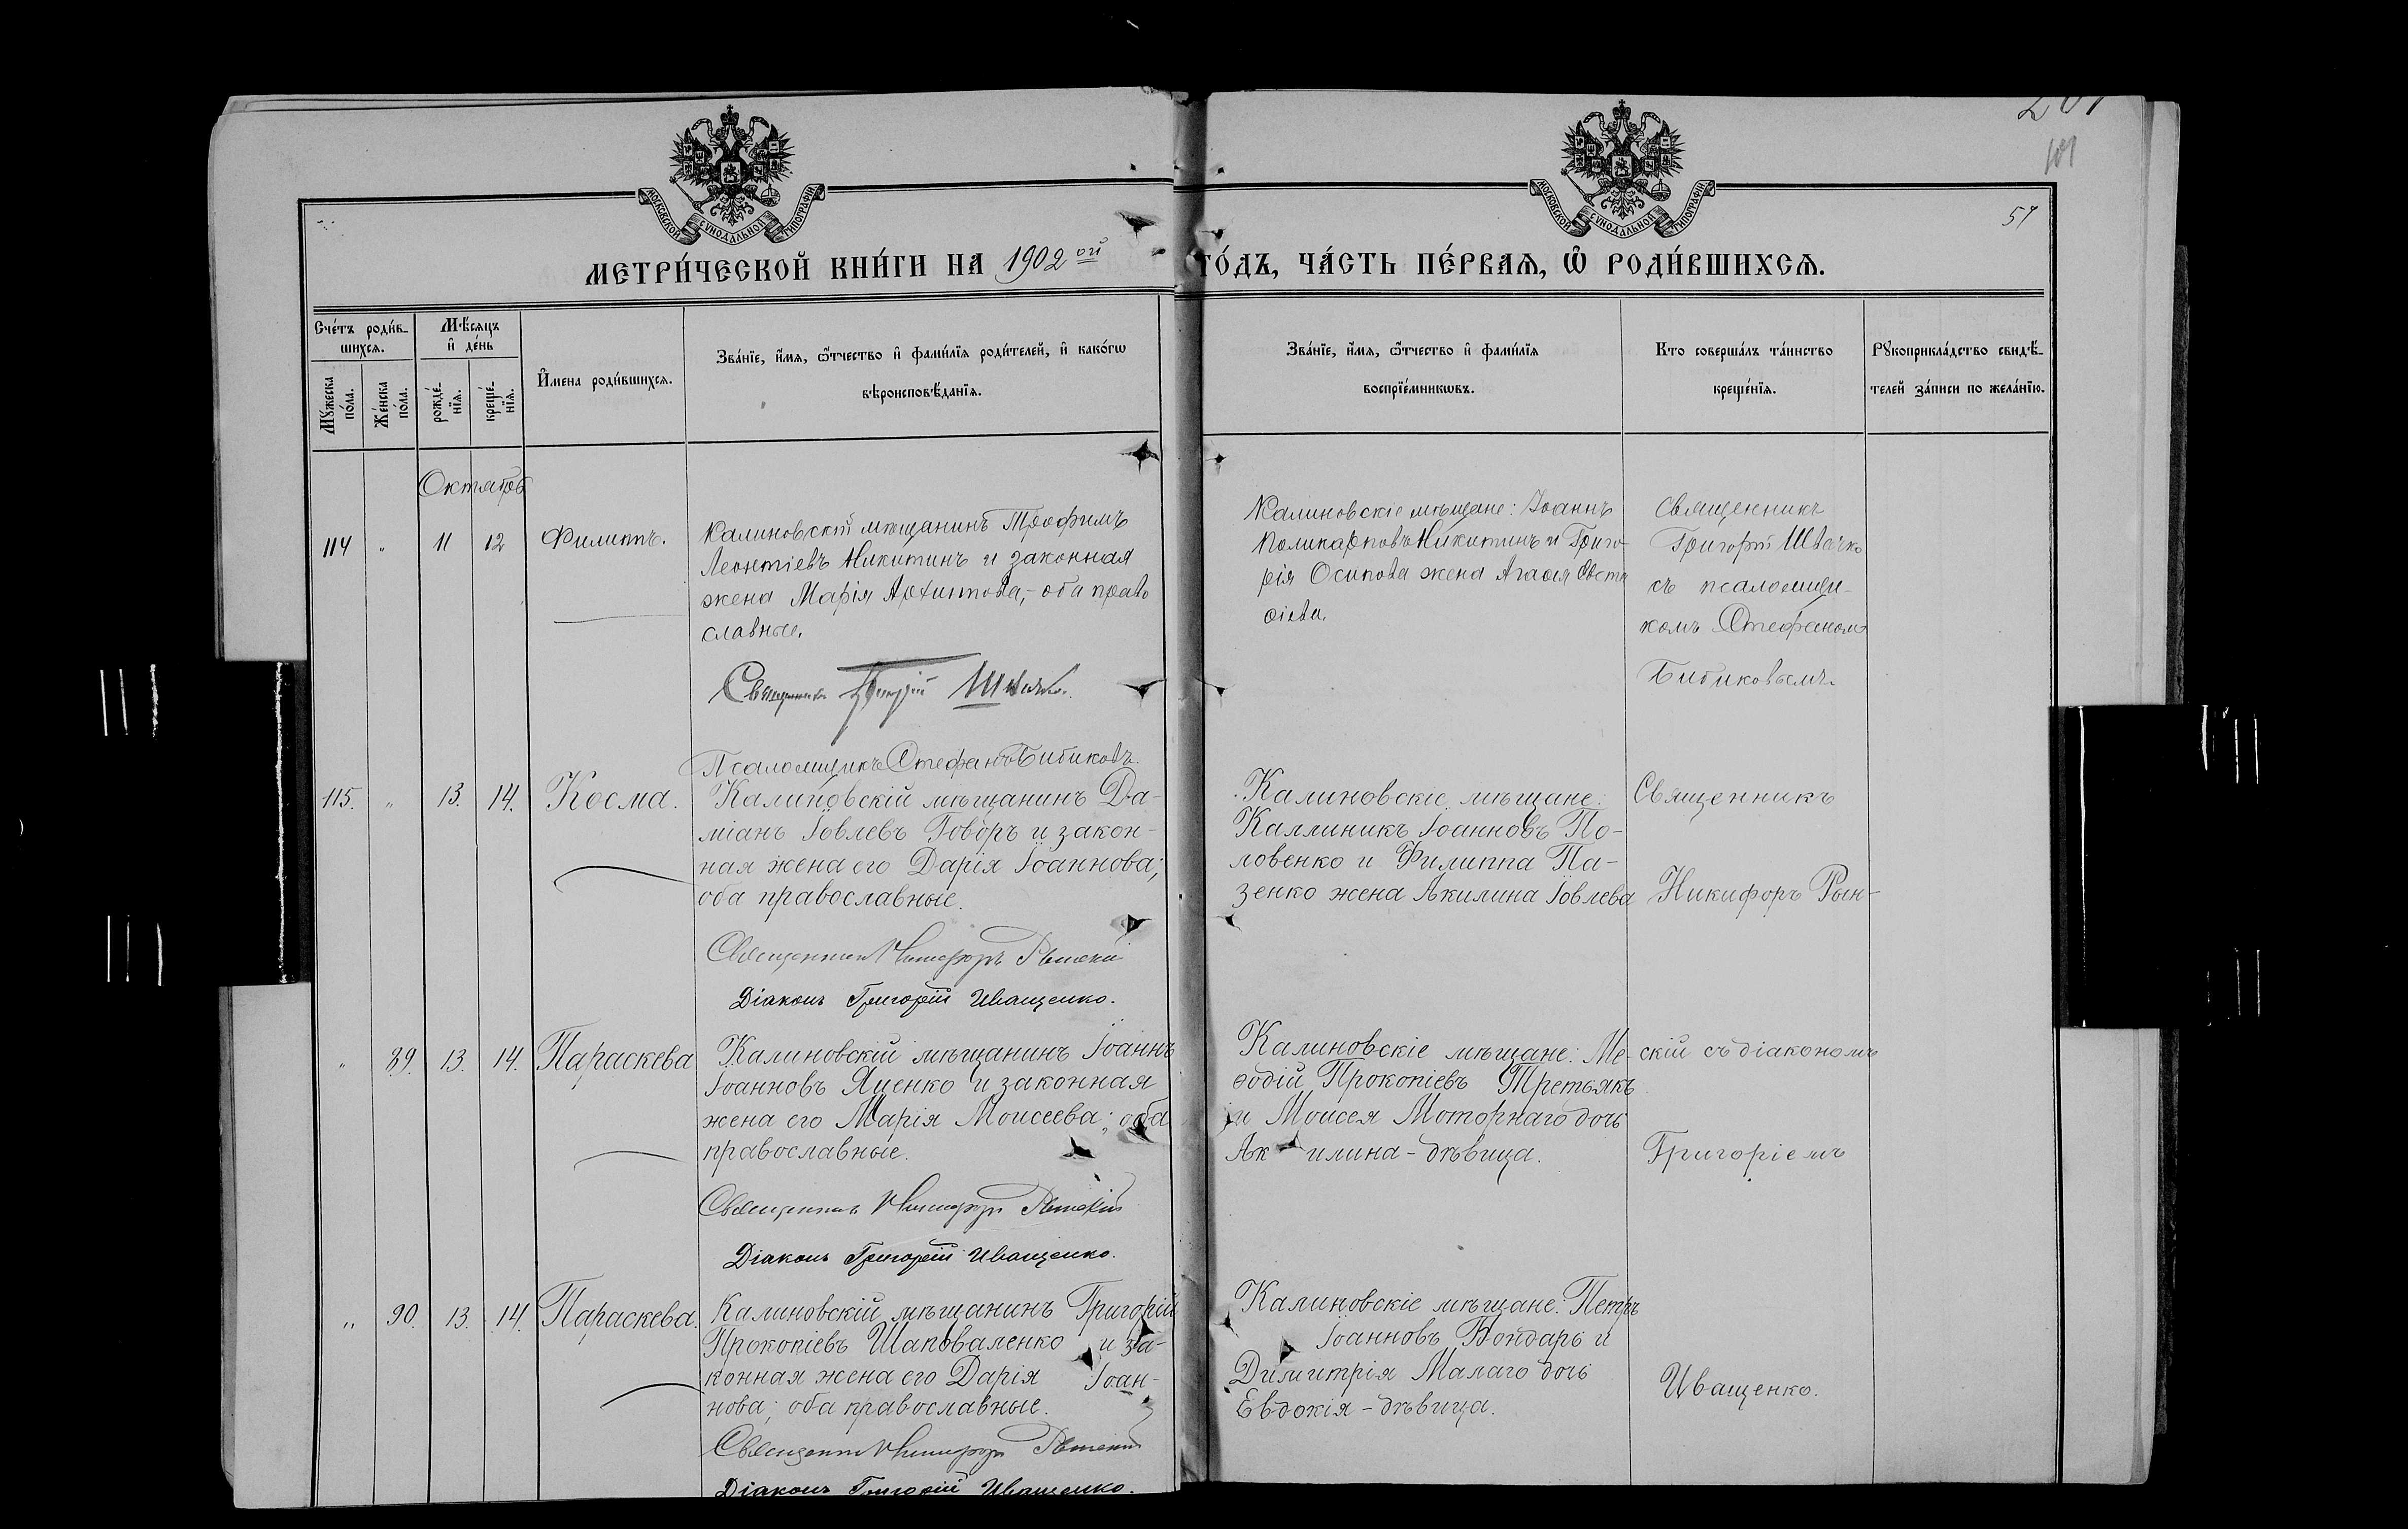 201
101
57
МОСКОВСКОЙ СѴНОДАЛЬНОЙ ТИПОГРАФІИ
МОСКОВСКОЙ СѴНОДАЛЬНОЙ ТИПОГРАФІИ
МЕТРИ́ЧЕСКОЙ КНИ́ГИ НА 1902ой ГО́ДЪ, ЧА́СТЬ ПЕ́РВАѦ, Ѽ РОДИ́ВШИХСѦ.
Сче́тъ роди́в-
шихсѧ.
Мꙋ́жеска
по́ла.
Же́нска
по́ла.
Мѣ́сяцъ
и҆ де́нь
рожде́-
нїѧ.
креще́-
нїѧ.
И҆мена роди́вшихсѧ.
Зва́нїе, и҆́мѧ, ѻ҆́тчество и҆ фами́лїѧ роди́телей, и҆ како́гѡ
вѣроисповѣ́данїѧ.
Зва́нїе, и҆́мѧ, ѻ҆́тчество и҆ фами́лїѧ
воспрїе́мникѡвъ.
Кто соверша́лъ та́инство
креще́нїѧ.
Рꙋкоприкла́дство свидѣ́-
телей за́писи по жела́нїю.
Октябрь
114 " 11 12 Филиппъ.
Калиновскій мѣщанинъ Трофимъ
Леонтіевъ Никитинъ и законная
жена Марія Архиппова,- оба право
славные.
Священникъ Григорій Швачко.
Псаломщикъ Стефанъ Бибиковъ.
Калиновскіе мѣщане: Іоаннъ
Поликарповъ Никитинъ и Григо-
рія Осипова жена Агафія Евста
фіева.
Священникъ
Григорій Швачко
съ псаломщи-
комъ Стефаномъ
Бибиковымъ.
115. " 13. 14. Косма.
Калиновскій мѣщанинъ Да-
міанъ Іовлевъ Говоръ и закон-
ная жена его Дарія Іоаннова;
оба православные.
Священникъ Никифоръ Рынскій
Діаконъ Григорій Иващенко.
Калиновскіе мѣщане:
Каллиникъ Іоанновъ По-
ловенко и Филиппа Па-
зенко жена Акилина Іовлева
Священникъ
Никифоръ Рын-
" 89. 13. 14. Параскева
Калиновскій мѣщанинъ Іоаннъ
Іоанновъ Яценко и законная
жена его Марія Моисеева; оба
православные.
Священникъ Никифоръ Рынскій
Діаконъ Григорій Иващенко.
Калиновскіе мѣщане: Ме-
ѳодій Прокопіевъ Третьякъ
и Моисея Моторнаго дочь
Акилина - дѣвица.
скій съ діакономъ
Григоріемъ
" 90. 13. 14. Параскева.
Калиновскій мѣщанинъ Григорій
Прокопіевъ Шаповаленко и за-
конная жена его Дарія Іоан-
нова; оба православные.
Священникъ Никифоръ Рынскій
Діаконъ Григорій Иващенко.
Калиновскіе мѣщане: Петръ
Іоанновъ Бондарь и
Димитрія Малаго дочь
Евдокія - дѣвица.
Иващенко.